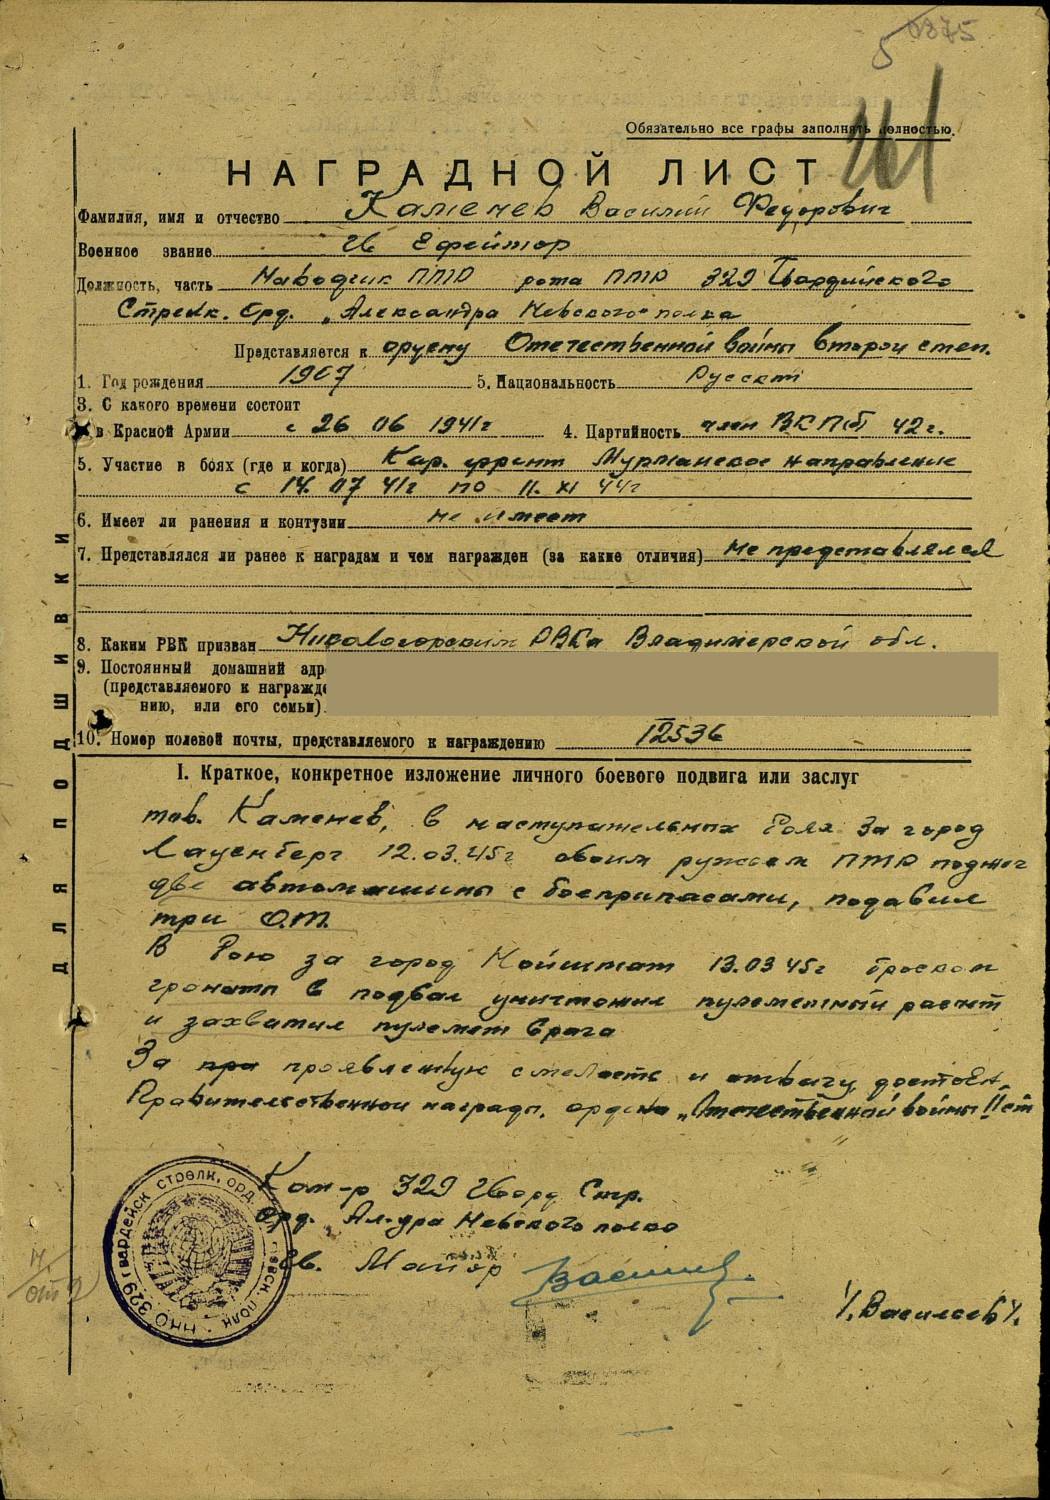 0875
Обязательно все графы заполнять полностью.
261
НАГРАДНОЙ ЛИСТ
Фамилия, имя и отчество Каменев Василий Федорович
Военное звание гв Ефейтор
Должность, часть Наводчик ПТР рота ПТР 329 Гвардийского
Стрелк. Орд. „Александра Невского" полка
Представляется к ордену Отечественной войны второй степ.
1. Год рождения 1907 5. Национальность Русский
3. С какого времени состоит
в Красной Армии с 26 06 1941г 4. Партийность член ВКП(б) 42г.
5. Участие в боях (где и когда) Кар. фронт Мурманское направление
с 14. 07 41г по 11. XI 44г
6. Имеет ли ранения и контузии не имеет
7. Представлялся ли ранее к наградам и чем награжден (за какие отличия) не представлялся
8. Каким РВК призван Никологорским РВКа Владимерской обл.
9. Постоянный домашний адр
(представляемого к награжде
нию, или его семьи)
10. Номер полевой почты, представляемого к награждению 12536
I. Краткое, конкретное изложение личного боевого подвига или заслуг
тов. Каменев, в наступательных боях за город
Лауенберг 12.03.45г своим ружьем ПТР поджег
две автомашины с боеприпасами, подавил
три О.Т.
В бою за город Нойштат 13.03 45г броском
гранаты в подвал уничтожил пулеметный расчет
и захватил пулемет врага
За при проявленную смелость и отвагу достоен
Правительственной награды. ордена „Отечественной войны II ст
"
Ком-р 329 Гвард Стр.
Орд. Ал-дра Невского полка
Гв. Майор
/. Василеев /.
ДЛЯ ПОДШИВКИ
НКО 329 гвардейск стрелк. орд. Невск. полк